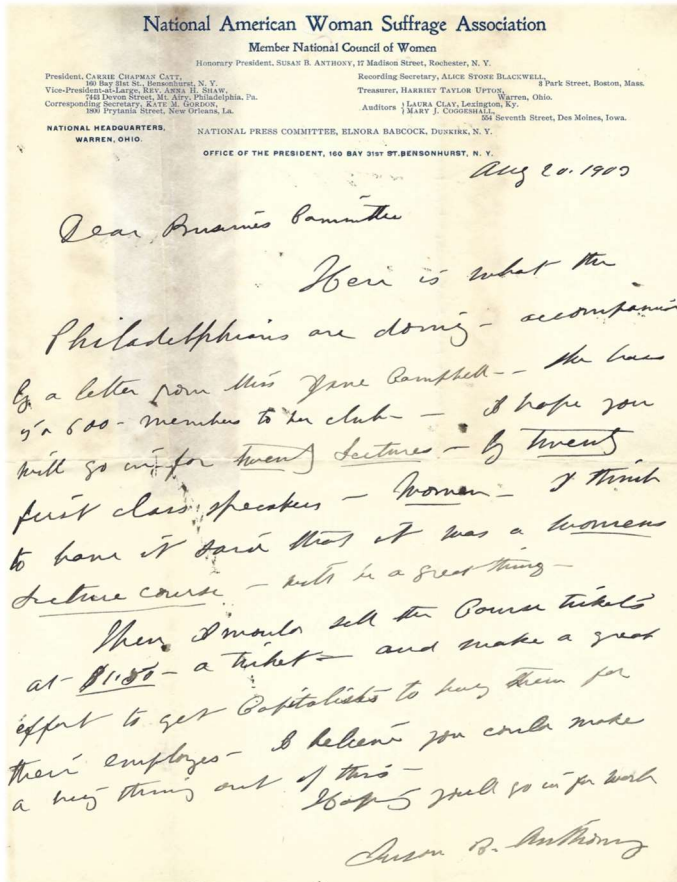 National American Woman Suffrage Association
Member National Council of Women
Honorary President, SUSAN B. ANTHONY, 17 Madison Street, Rochester, N. Y.
President, CARRIE CHAPMAN CATT,
160 Bay 31st St., Bensonhurst, N. Y.
Vice-President-at-Large, REV. ANNA H. SHAW,
7443 Devon Street, Mt. Airy, Philadelphia, Pa.
Corresponding Secretary, KATE M. GORDON,
1800 Prytania Street, New Orleans, La.
Recording Secretary, ALICE STONE BLACKWELL,
3 Park Street, Boston, Mass.
Treasurer, HARRIET TAYLOR UPTON,
Warren, Ohio.
Auditors { LAURA CLAY, Lexington, Ky.
MARY J. COGGESHALL,
554 Seventh Street, Des Moines, Iowa.
NATIONAL HEADQUARTERS,
WARREN, OHIO.
NATIONAL PRESS COMMITTEE, ELNORA BABCOCK, DUNKIRK, N. Y.
OFFICE OF THE PRESIDENT, 160 BAY 31ST ST. BENSONHURST, N. Y.
Aug 20. 1903
Dear Business Committee
Here is what the
Philadelphians are doing - accompanied
by a letter from Miss Jane Campbell - she has
5 or 600 - members to her club - I hope you
will go in for twenty Lectures - by twenty
first class speakers - Women - I think
to have it said that it was a womens
Lecture course - will be a great thing -
Then I would sell the Course tickets
at $1.50 - a ticket - and make a great
effort to get Capitalists to buy them for
their employes - I believe you could make
a big thing out of this -
Hoping you'll go in for work
Susan B. Anthony